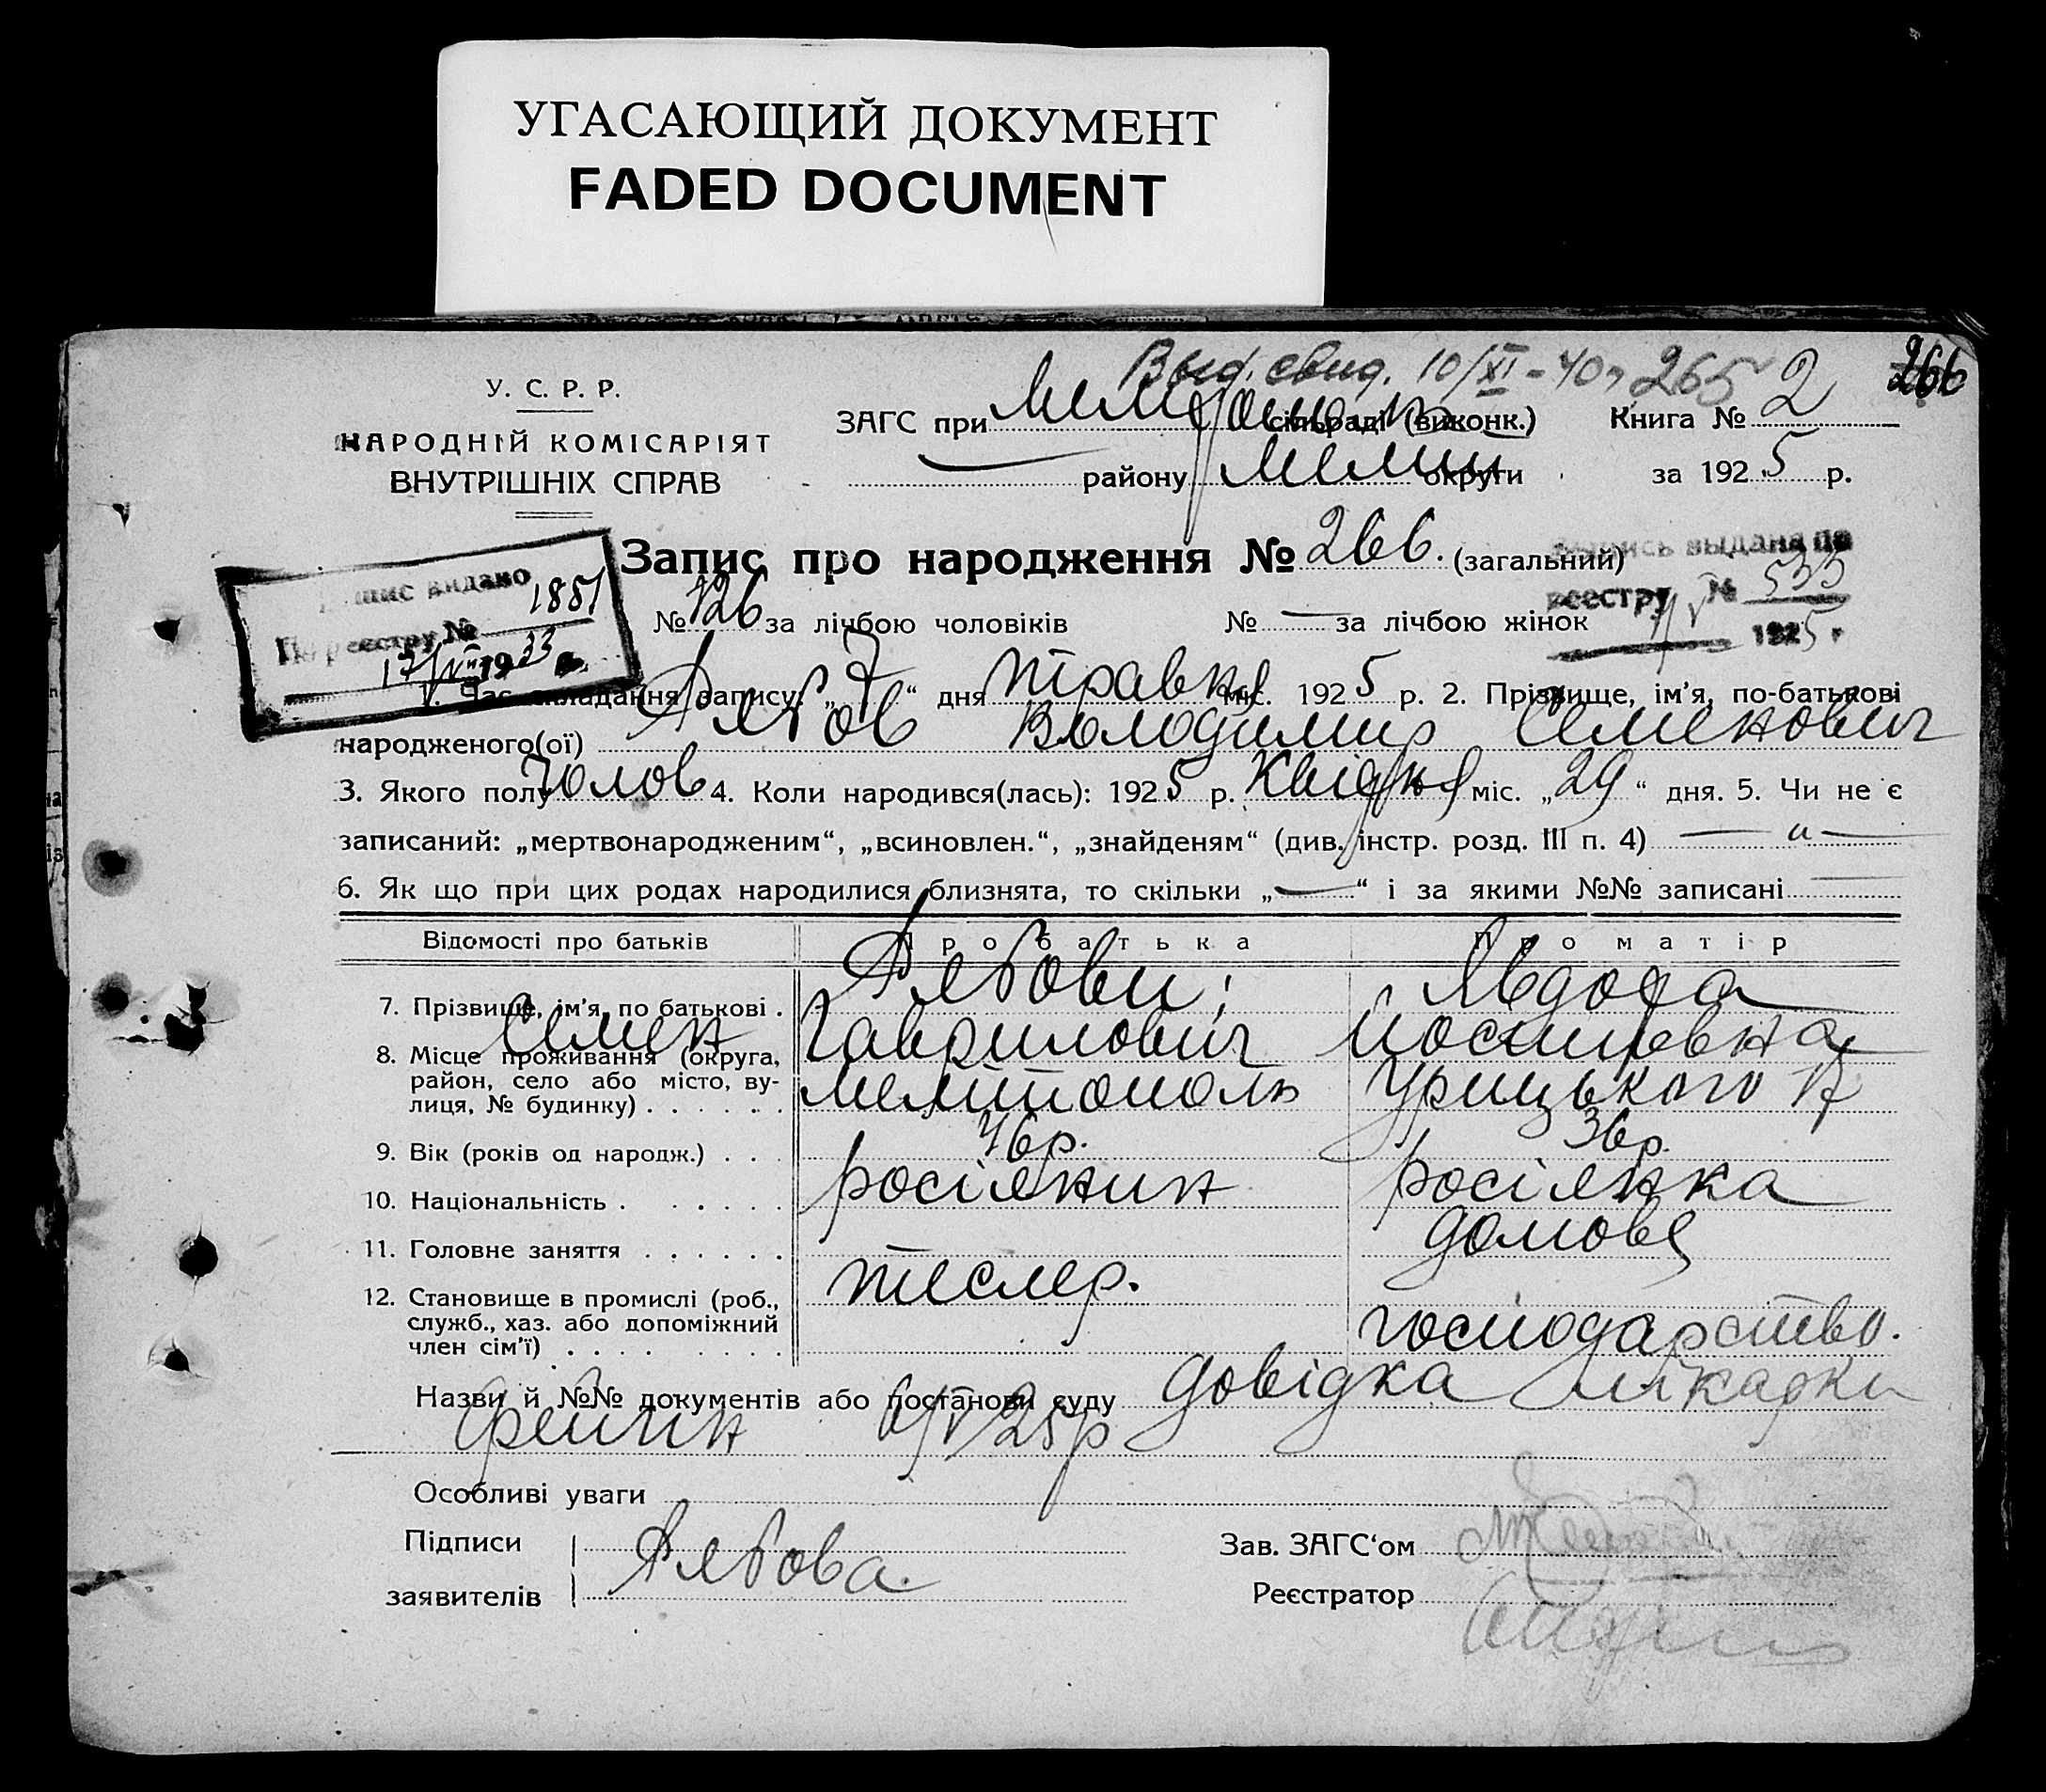 УГАСАЮЩИЙ ДОКУМЕНТ
FADED DOCUMENT
Выд. свид. 10/XI-40 265 266
У. С. Р. Р.
НАРОДНІЙ КОМІСАРІЯТ
ВНУТРІШНІХ СПРАВ
ЗАГС при сільраді (виконк.) Книга № 2
— району Меліт округи за 1925 р.
Запис про народження № 266. (загальний)
выдана по
реестру № 535
1925 г
видано
По реестру № 1851
17/VII 1933
№ 126 за лічбою чоловіків № — за лічбою жінок
1. Час складання запису: „7“ дня травня міс. 1925 р. 2. Прізвище, ім'я, по-батькові
народженого(ої) Володимир Семенович
3. Якого полу Чолов 4. Коли народився(лась): 1925 р. Квітня міс. „29“ дня. 5. Чи не є
записаний: „мертвонародженим“, „всиновлен.“, „знайденям“ (див. інстр. розд. III п. 4) — „ —
6. Як що при цих родах народилися близнята, то скільки „—“ і за якими №№ записані —
Відомості про батьків Про батька Про матір
7. Прізвище, ім'я, по батькові .
Семен Гаврилович Йосипівна
8. Місце проживання (округа, район, село або місто, вулиця, № будинку) . . . . . . Мелітополь Урицького 17
9. Вік (років од народж.) . . . 46р. 36р.
10. Національність . . . . . . росіянин росіянка
11. Головне заняття . . . . . . тесляр. домове
12. Становище в промислі (роб., служб., хаз. або допоміжний член сім'ї) . . . . . . . . господарство.
Назви й №№ документів або постанови суду довідка лікарки
6/V 25р
Особливі уваги
Підписи
заявителів
Зав. ЗАГС'ом
Реєстратор